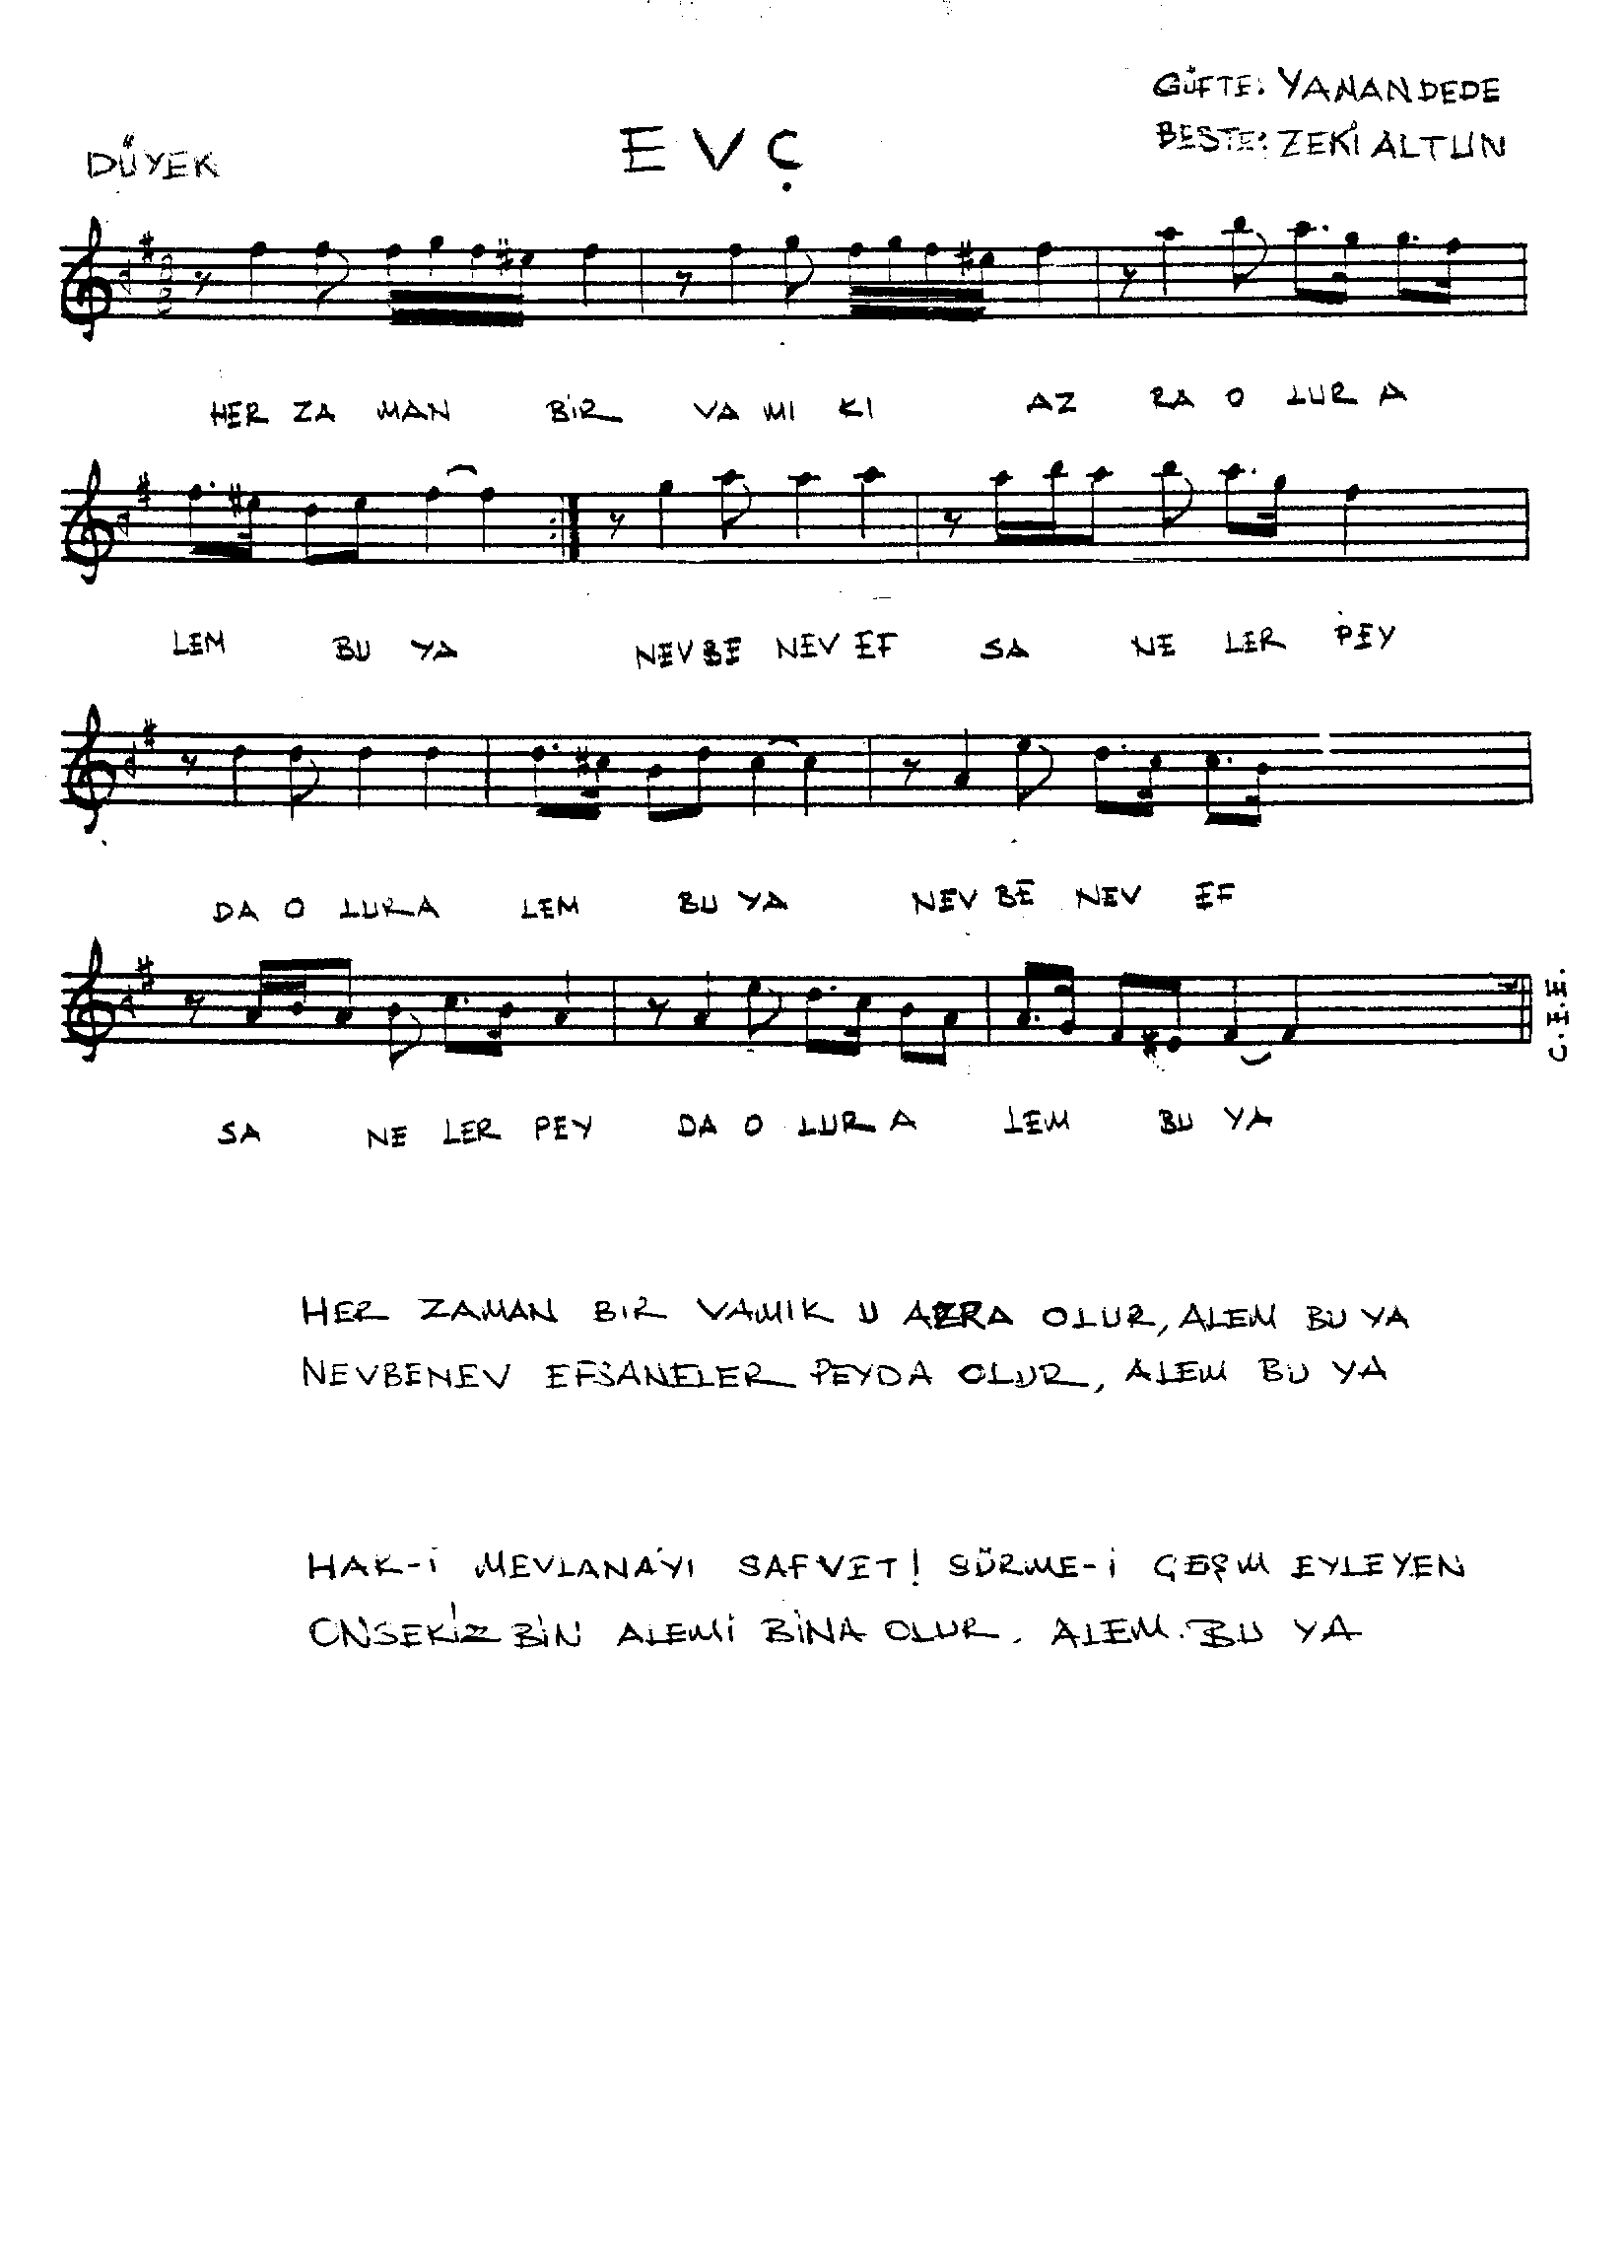 GÜFTE: YANANDEDE
DÜYEK
EVÇ
BESTE: ZEKİ ALTUN
HER ZA MAN BİR VA MI KI AZ RA O LUR A
LEM BU YA NEV BE NEV EF SA NE LER PEY
DA O LUR A LEM BU YA NEV BE NEV EF
SA NE LER PEY DA O LUR A LEM BU YA
C.E.E.
HER ZAMAN BIR VAMIK U AZRA OLUR, ALEM BU YA
NEVBENEV EFSANELER PEYDA OLUR, ALEM BU YA
HAK-İ MEVLANA'YI SAFVET! SÜRME-İ ÇEŞM EYLEYEN
ONSEKİZ BİN ALEMİ BİNA OLUR. ALEM. BU YA